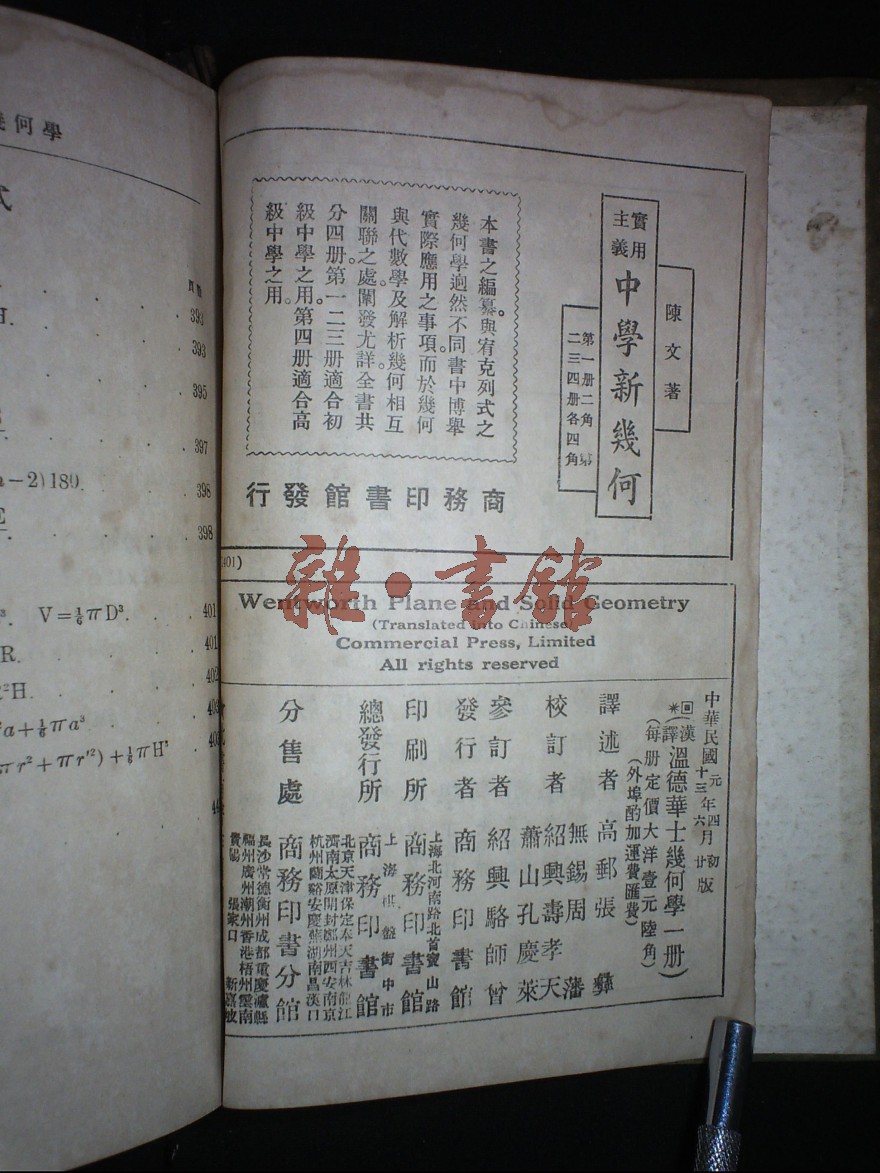 幾何學
式
頁數
393
H.
393
395
397
n－2)180.
398
398
V=⅙πD³.
401
R.
401
R²H.
402
²a+⅙πa³
403
πr²+πr'²)+⅙πH³
陳文著
實用主義
中學新幾何
第一册二角第
二三四册各四角
本書之編纂。與宥克列式之
幾何學迥然不同書中博舉
實際應用之事項。而於幾何
與代數學及解析幾何相互
關聯之處。闡發尤詳全書共
分四册。第一二三册適合初
級中學之用。第四册適合高
級中學之用。
商務印書館發行
401)
雜·書館
Wentworth Plane and Solid Geometry
(Translated into Chinese)
Commercial Press, Limited
All rights reserved
中華民國元年四月初版
十三年六月廿版
(漢譯溫德華士幾何學一册)
(每册定價大洋壹元陸角)
(外埠酌加運費匯費)
譯述者 高郵張彝
校訂者 無錫周藩
紹興壽孝天
參訂者 蕭山孔慶萊
紹興駱師曾
發行者 商務印書館
印刷所 上海北河南路北首寶山路
商務印書館
總發行所 上海棋盤街中市
商務印書館
分售處 北京天津保定奉天吉林龍江
濟南太原開封鄭州西安南京
杭州蘭谿安慶蕪湖南昌漢口
商務印書分館
長沙常德衡州成都重慶瀘縣
福州廣州潮州香港梧州雲南
貴陽 張家口 新嘉坡